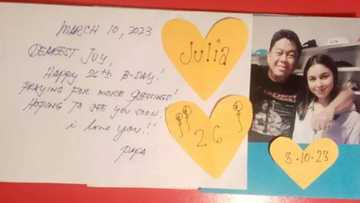 MARCH 10, 2023
DEAREST JUY,
HAPPY 26th B-DAY!
PRAYING FOR MORE BLESSINGS!
HOPING TO SEE YOU SOON.
i love you!!
PAPA
Julia
26
3-10-23